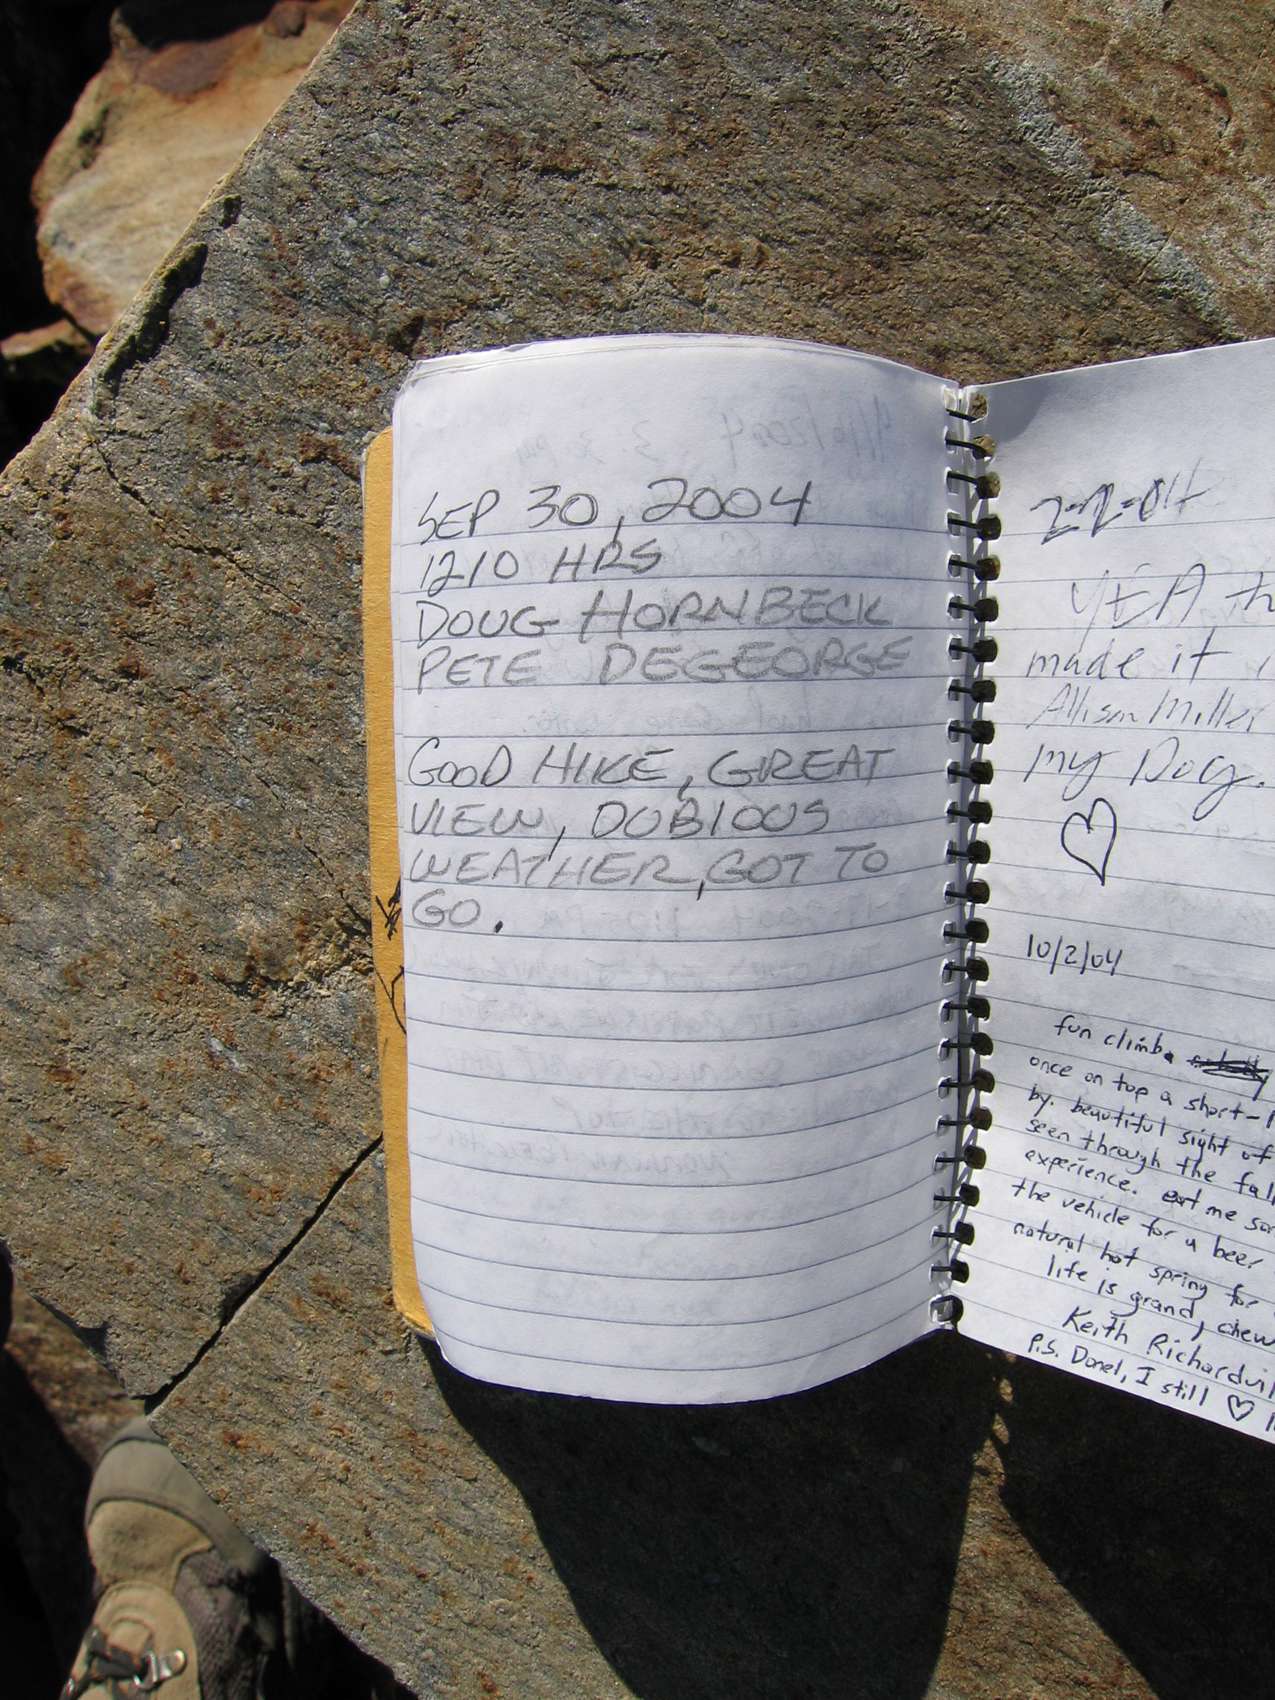 SEP 30, 2004
1210 HRS
DOUG HORNBECK
PETE DEGEORGE
GOOD HIKE, GREAT
VIEW, DUBIOUS
WEATHER, GOT TO
GO.
YEA
made it
Allison Miller
my Dog.
10/2/04
fun climb
once on top a short-
by. beautiful sight of
seen through the fall
experience. me
the vehicle for a beer
natural hot spring for
life is grand, chew
Keith
P.S. Donel, I still ♡